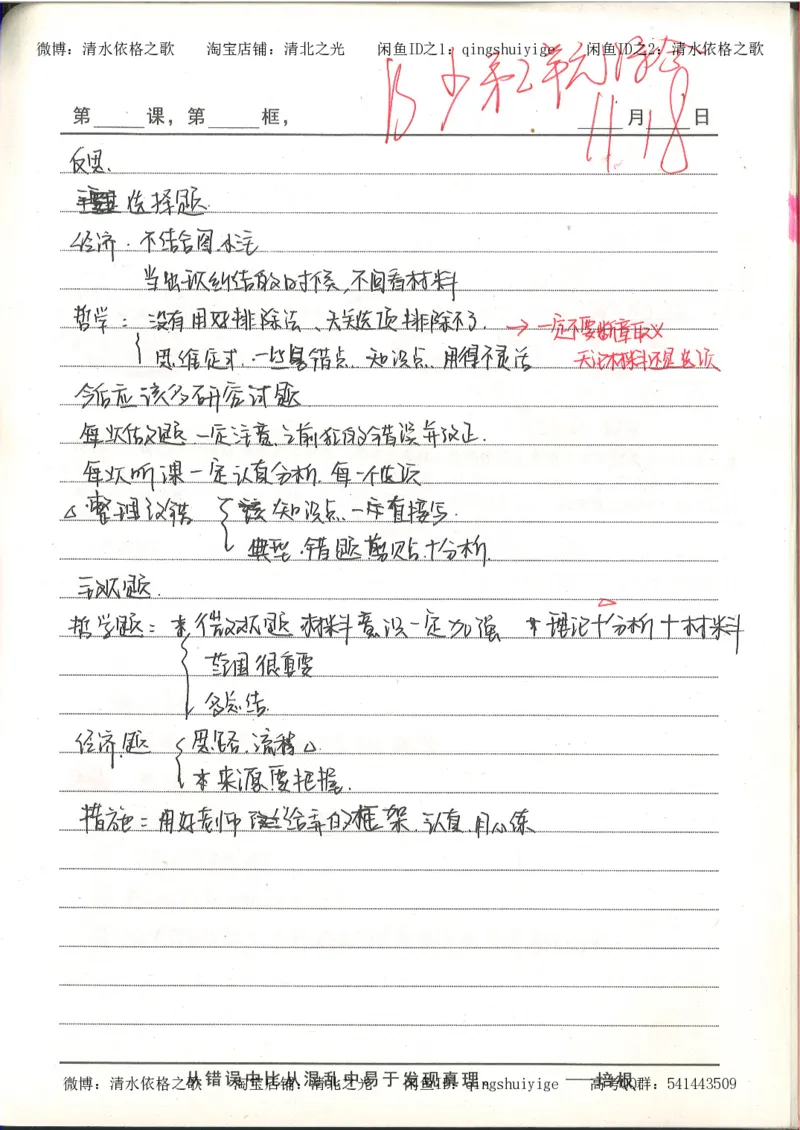 微博：清水依格之歌 淘宝店铺：清北之光 闲鱼ID之1：qingshuiyige 闲鱼ID之2：清水依格之歌
第 课，第 框， 月 日
11 18
反思.
选择题
经济. 不结合图.水注
当出现纠结的时候,不回看材料
哲学： 没有用好排除法、无关选项排除不了. → 一定不要断章取义
思维定式. 一些易错点. 知识点. 用得不灵活 无论材料还是选项
今后应该多研究试题
每次做题 一定注意.之前犯的错误并改正.
每次听课一定认真分析. 每一个选项
△整理改错 该知识点一定直接写.
典型.错题剪贴+分析.
主观题.
哲学题： 做主观题 材料意识一定加强 理论+分析+材料
范围很重要
多总结.
经济.题 思路.流程△
来源要把握.
措施：用好老师给弄的框架.认真.用心练
从错误中比从混乱中易于发现真理。 ——培根
微博：清水依格之歌 淘宝店铺：清北之光 闲鱼ID：qingshuiyige 高考QQ群：541443509